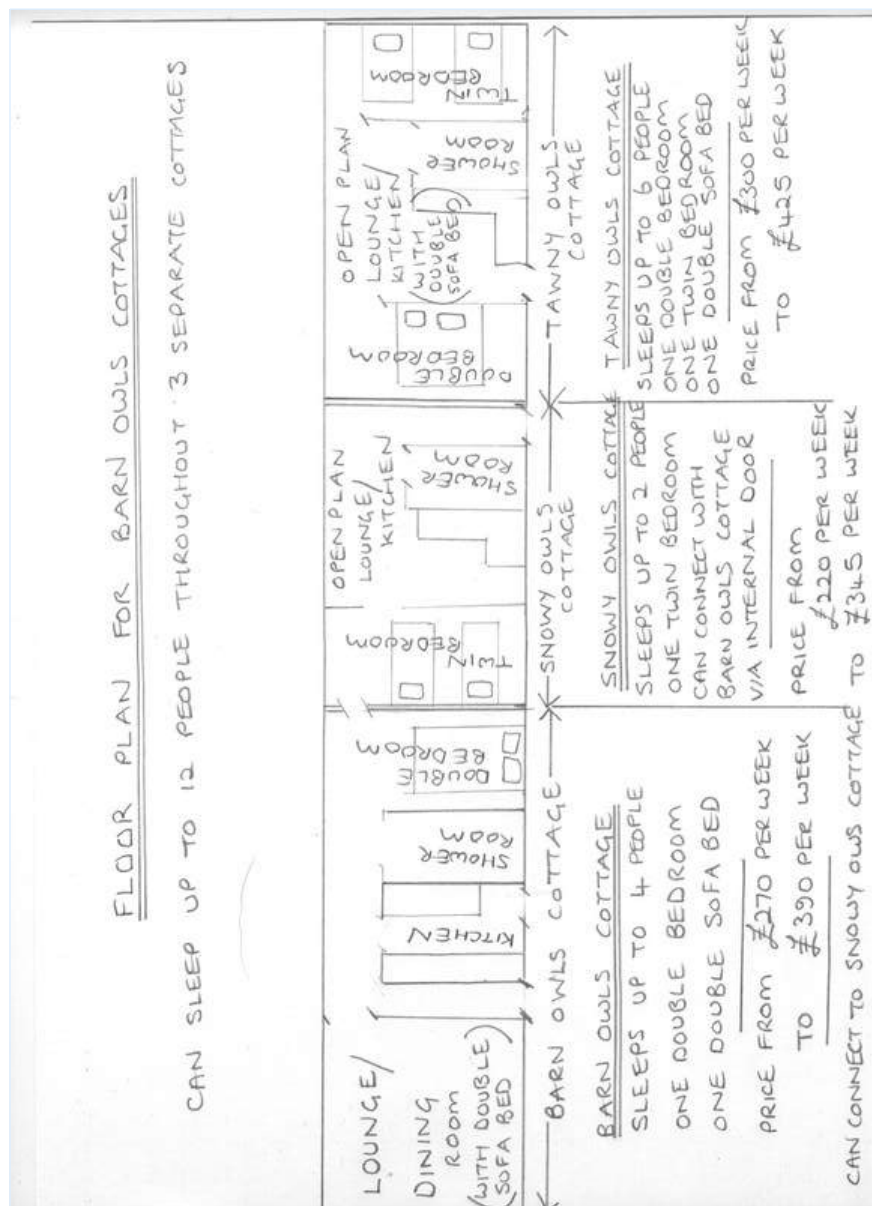 FLOOR PLAN FOR BARN OWLS COTTAGES
CAN SLEEP UP TO 12 PEOPLE THROUGHOUT 3 SEPARATE COTTAGES
LOUNGE/
DINING
ROOM
(WITH DOUBLE
SOFA BED)
KITCHEN
SHOWER
ROOM
DOUBLE
BEDROOM
TWIN
BEDROOM
OPEN PLAN
LOUNGE/
KITCHEN
SHOWER
ROOM
DOUBLE
BEDROOM
OPEN PLAN
LOUNGE/
KITCHEN
(WITH
DOUBLE
SOFA BED)
SHOWER
ROOM
TWIN
BEDROOM
BARN OWLS COTTAGE
SNOWY OWLS
COTTAGE
TAWNY OWLS
COTTAGE
BARN OWLS COTTAGE
SLEEPS UP TO 4 PEOPLE
ONE DOUBLE BEDROOM
ONE DOUBLE SOFA BED
PRICE FROM £270 PER WEEK
TO £390 PER WEEK
CAN CONNECT TO SNOWY OWS COTTAGE
SNOWY OWLS COTTAGE
SLEEPS UP TO 2 PEOPLE
ONE TWIN BEDROOM
CAN CONNECT WITH
BARN OWLS COTTAGE
VIA INTERNAL DOOR
PRICE FROM
£220 PER WEEK
TO £345 PER WEEK
TAWNY OWLS COTTAGE
SLEEPS UP TO 6 PEOPLE
ONE DOUBLE BEDROOM
ONE TWIN BEDROOM
ONE DOUBLE SOFA BED
PRICE FROM £300 PER WEEK
TO £425 PER WEEK